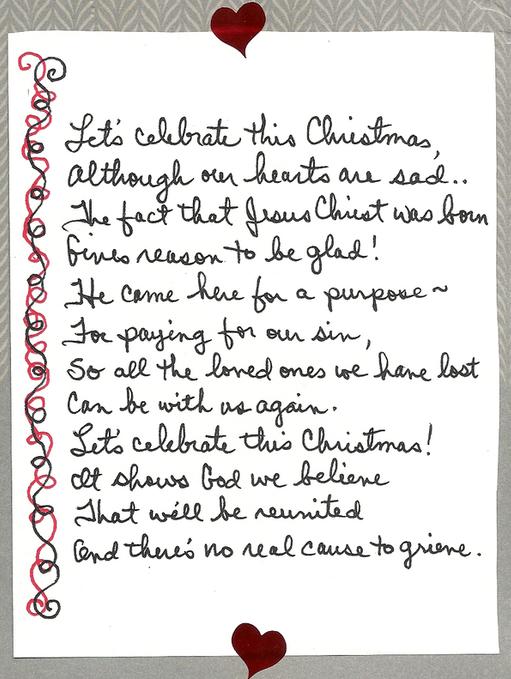 Let's celebrate this Christmas,
Although our hearts are sad..
The fact that Jesus Christ was born
Gives reason to be glad!
He came here for a purpose~
For paying for our sin,
So all the loved ones we have lost
Can be with us again.
Let's celebrate this Christmas!
It shows God we believe
That we'll be reunited
And there's no real cause to grieve.